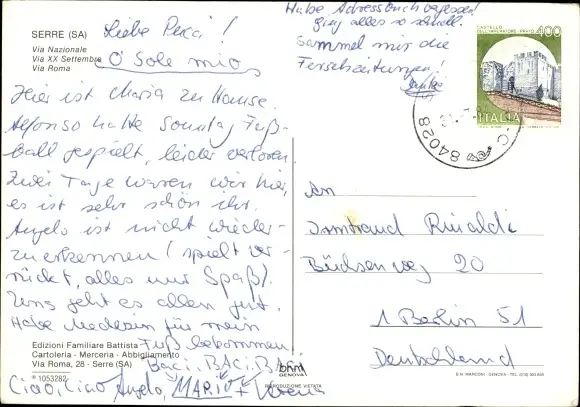 SERRE (SA)
Via Nazionale
Via XX Settembre
Via Roma
Liebe Perci!
O' Sole mio
Hier ist Maria zu Hause.
Alfonso hatte Sonntag Fuß-
ball gespielt, leider verloren.
Zwei Tage waren wir hier,
es ist sehr schön ihr.
Angelo ist nicht wieder-
zuerkennen! spielt ver-
rückt, alles nur Spaß!
Uns geht es allen gut.
Habe Medezin für mein
Fuß bekommen.
Baci, BACi, BACi
Ciao, Ciao Angelo, MARIO + Verena
Habe Adressbuch vergessen
ging alles so schnell.
Sammel mir die
Fersehzeitungen!
Danke
CASTELLO
DELL'IMPERATORE - PRATO
400
ITALIA
84028
An
Irmtraud Rinaldi
Büchsenweg 20
1 Berlin 51
Deutschland
Edizioni Familiare Battista
Cartoleria - Merceria - Abbigliamento
Via Roma, 28 - Serre (SA)
1053282
bhm
GENOVA
RIPRODUZIONE VIETATA